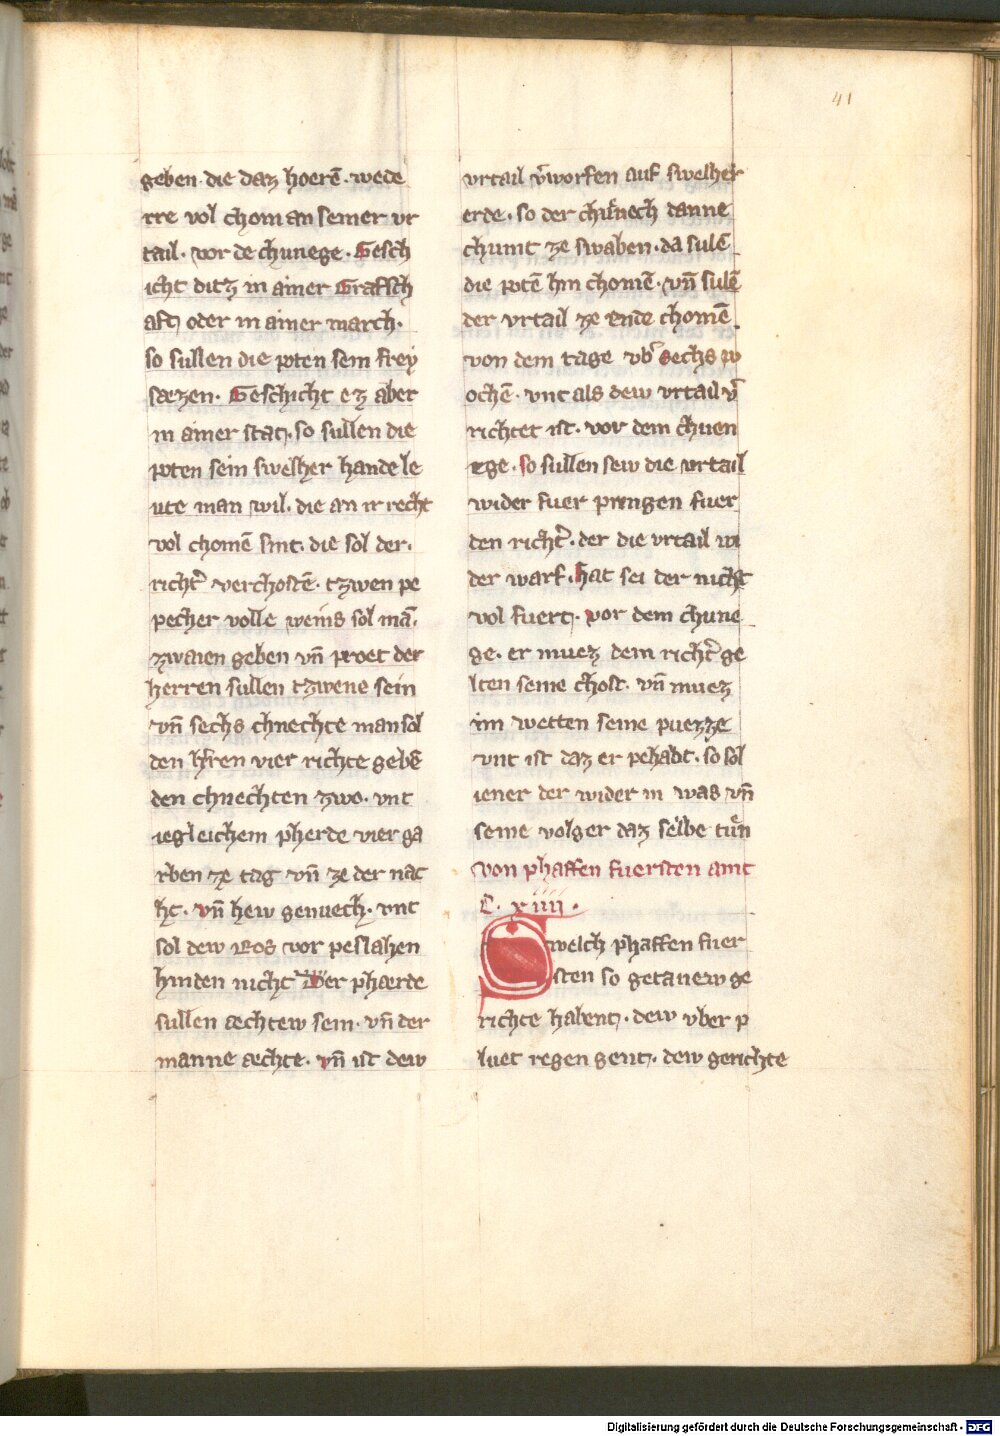 41
geben · die daz hoerē · wede
rre vol chom an seiner vr
tail · vor de chunege · Gesch
icht ditz in ainer Grafsch
aft oder in ainer march ·
so sullen die poten sein frey
sæzen · Geschicht ez aber
in ainer stat · so sullen die
poten sein swelher hande le
ute man wil · die an ir recht
vol chomē sint · die sol der ·
richt̾ verchostē · tzwen pe
pecher volle weins sol mā ·
zwaien geben vn̄ proet der
herren sullen tzwene sein
vn̄ sechs chnechte man sol
den hr̄en vier richte gebē
den chnechten zwo · vnt
iegleichem pherde vier ga
rben ze tag vn̄ ze der nac
ht · vn̄ hew genuech · vnt
sol dew Ros vor peslahen
hinden nicht Der phærde
sullen æchtew sein · vn̄ der
manne æchte · vn̄ ist dew
vrtail v̄worfen auf swelher
erde · so der chunech danne
chumt ze swaben · da sulē
die potē hin chomē · vn̄ sulē
der vrtail ze ende chomē
von dem tage vb̾ sechs w
ochē · vnt als dew vrtail v̄
richtet ist · vor dem chuen
ege · so sullen sew die vrtail
wider fuer pringen fuer
den richt̾ · der die vrtail wi
der warf · hat sei der nicht
vol fuert · vor dem chune
ge · er muez dem richt̾ ge
lten seine chost · vn̄ muez
im wetten seine puezze
vnt ist daz er pehabt · so sol
iener der wider in was vn̄
seine volger daz selbe tuͤn
von phaffen fuersten amt
C · xiiii ·
Swelch phaffen fuer
sten so getanew ge
richte habent · dew vber p
luet regen gent · dew gerichte
Digitalisierung gefördert durch die Deutsche Forschungsgemeinschaft - DFG